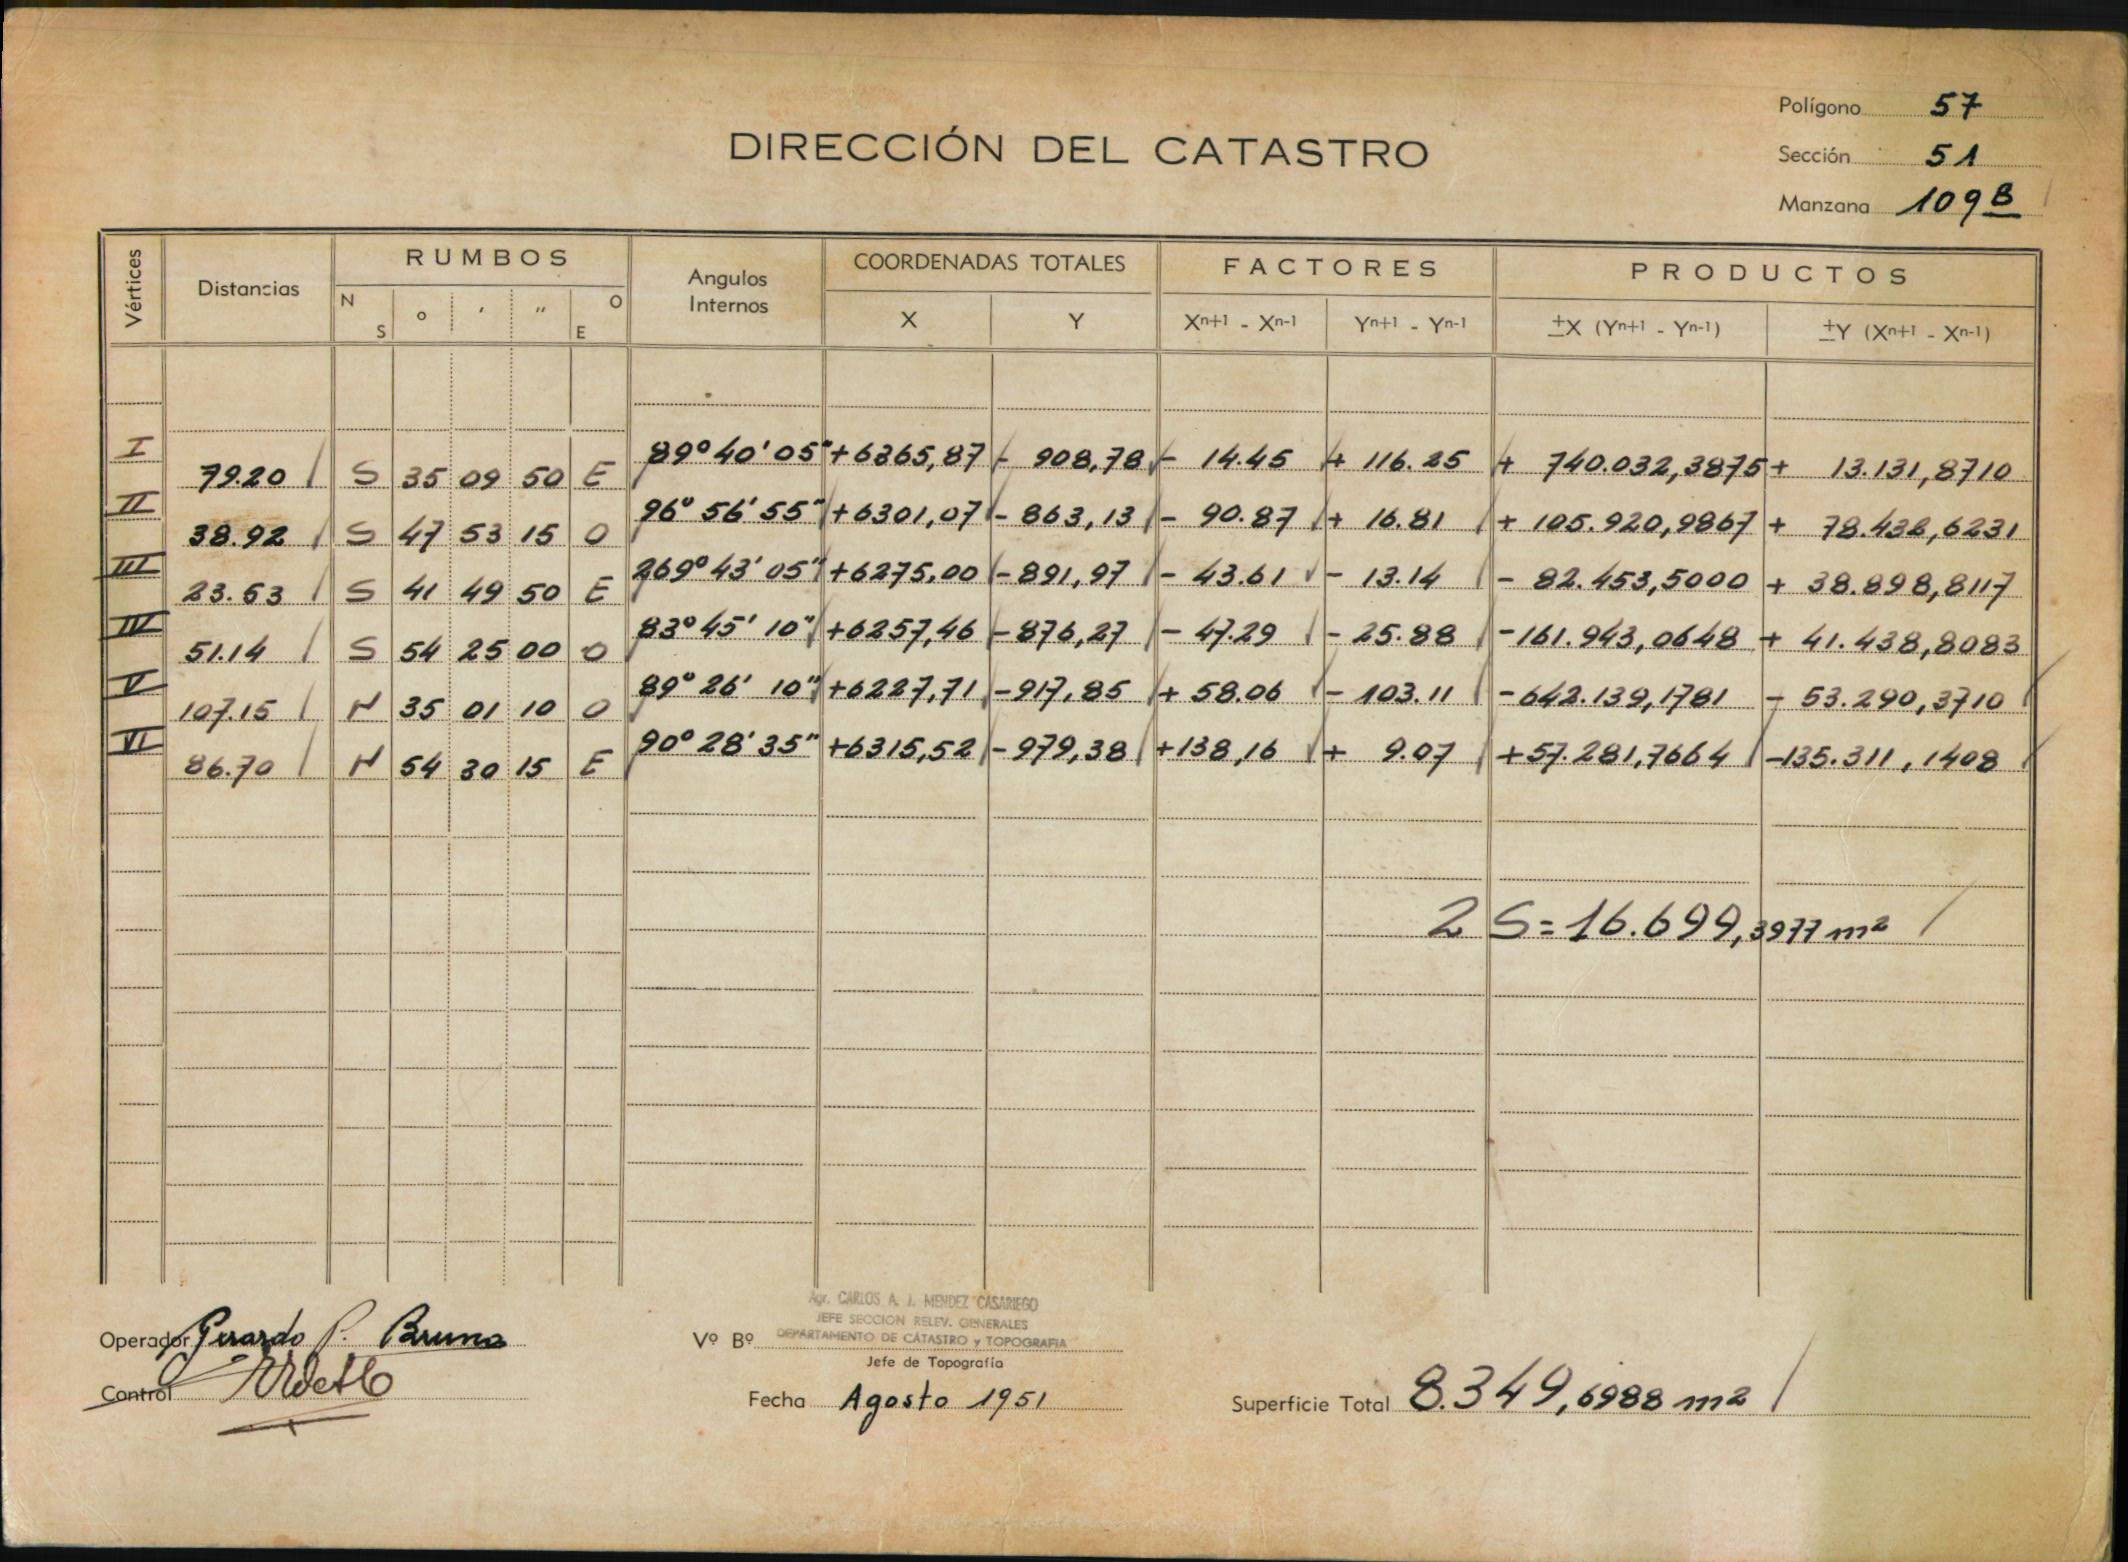 Polígono 57
DIRECCIÓN DEL CATASTRO
Sección 51
Manzana 109 B
Vértices Distancias RUMBOS Angulos Internos COORDENADAS TOTALES FACTORES PRODUCTOS
N S ° ' " O E X Y Xn+1 - Xn-1 Yn+1 - Yn-1 ±X (Yn+1 - Yn-1) ±Y (Xn+1 - Xn-1)
I 79.20 S 35 09 50 E 89° 40' 05" +6365,87 - 908,78 - 14.45 + 116.25 + 740.032,3875 + 13.131,8710
II 38.92 S 47 53 15 O 96° 56' 55" +6301,07 - 863,13 - 90.87 + 16.81 + 105.920,9867 + 78.432,6231
III 23.53 S 41 49 50 E 269° 43' 05" +6275,00 - 891,97 - 43.61 - 13.14 - 82.453,5000 + 38.898,8117
IV 51.14 S 54 25 00 O 83° 45' 10" +6257,46 - 876,27 - 47.29 - 25.88 - 161.943,0648 + 41.438,8083
V 107.15 N 35 01 10 O 89° 26' 10" +6227,71 - 917,85 + 58.06 - 103.11 - 642.139,1781 - 53.290,3710
VI 86.70 N 54 30 15 E 90° 28' 35" +6315,52 - 979,38 +138,16 + 9.07 + 57.281,7664 -135.311,1408
2 S = 16.699,3977 m2
Agr. CARLOS A. J. MENDEZ CASARIEGO
JEFE SECCION RELEV. GENERALES
Operador Gerardo P. Bruno Vº Bº DEPARTAMENTO DE CATASTRO y TOPOGRAFIA
Jefe de Topografía
Control Fecha Agosto 1951 Superficie Total 8.349,6988 m2